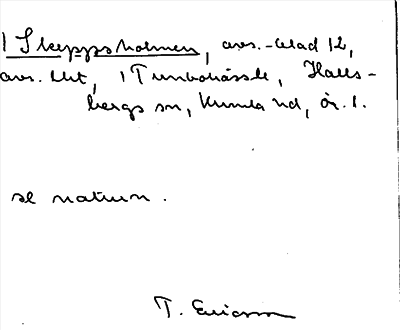 1 Skeppsholmen, avs.-blad 12,
avs. Utt, 1 Tunbohässle, Halls-
bergs sn, Kumla hd, ör. l.
se naturn.
T. Ericsson